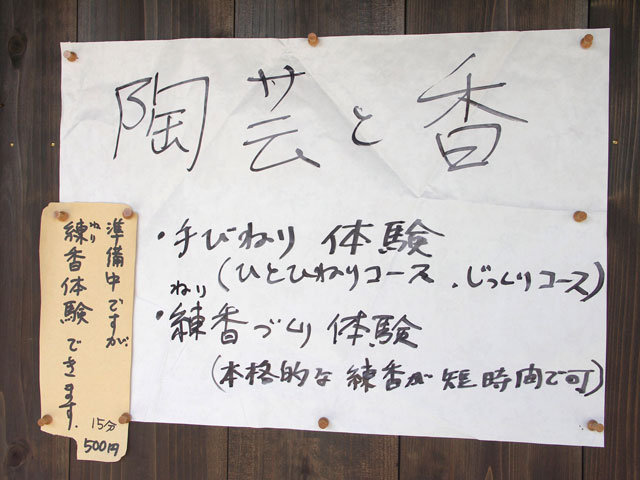 陶芸と香
・手びねり体験
(ひとひねりコース・じっくりコース)
ねり
・練香づくり体験
(本格的な練香が短時間で可)
準備中ですが
ねり
練香体験できます。
15分
500円